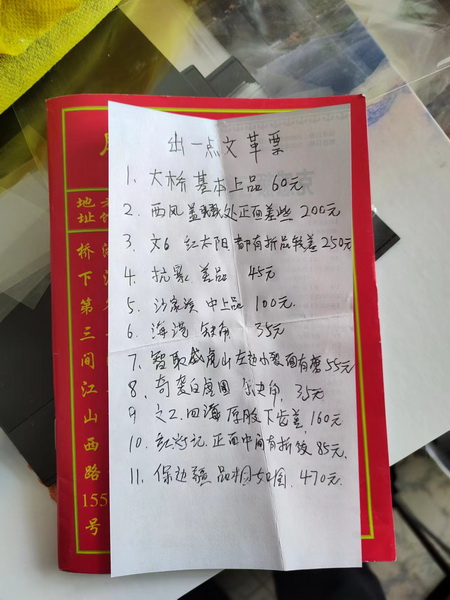 出一点文革票
1、大桥 基本上品 60元
2、西凤 盖戳处正面差些 200元
3、文6 红太阳 都有折品较差 250元
4、抗暴 差品 45元
5、沙家浜 中上品 100元
6、海港 缺角 35元
7、智取威虎山 左边小裂面有磨 55元
8、奇袭白虎团 35元
9 文2、四海 厚胶下齿差, 160元
10、红灯记 正面中间有折纹 85元、
11、保边疆 品相如图, 470元
地
址
桥
下
第
三
间
江
山
西
路
155
号